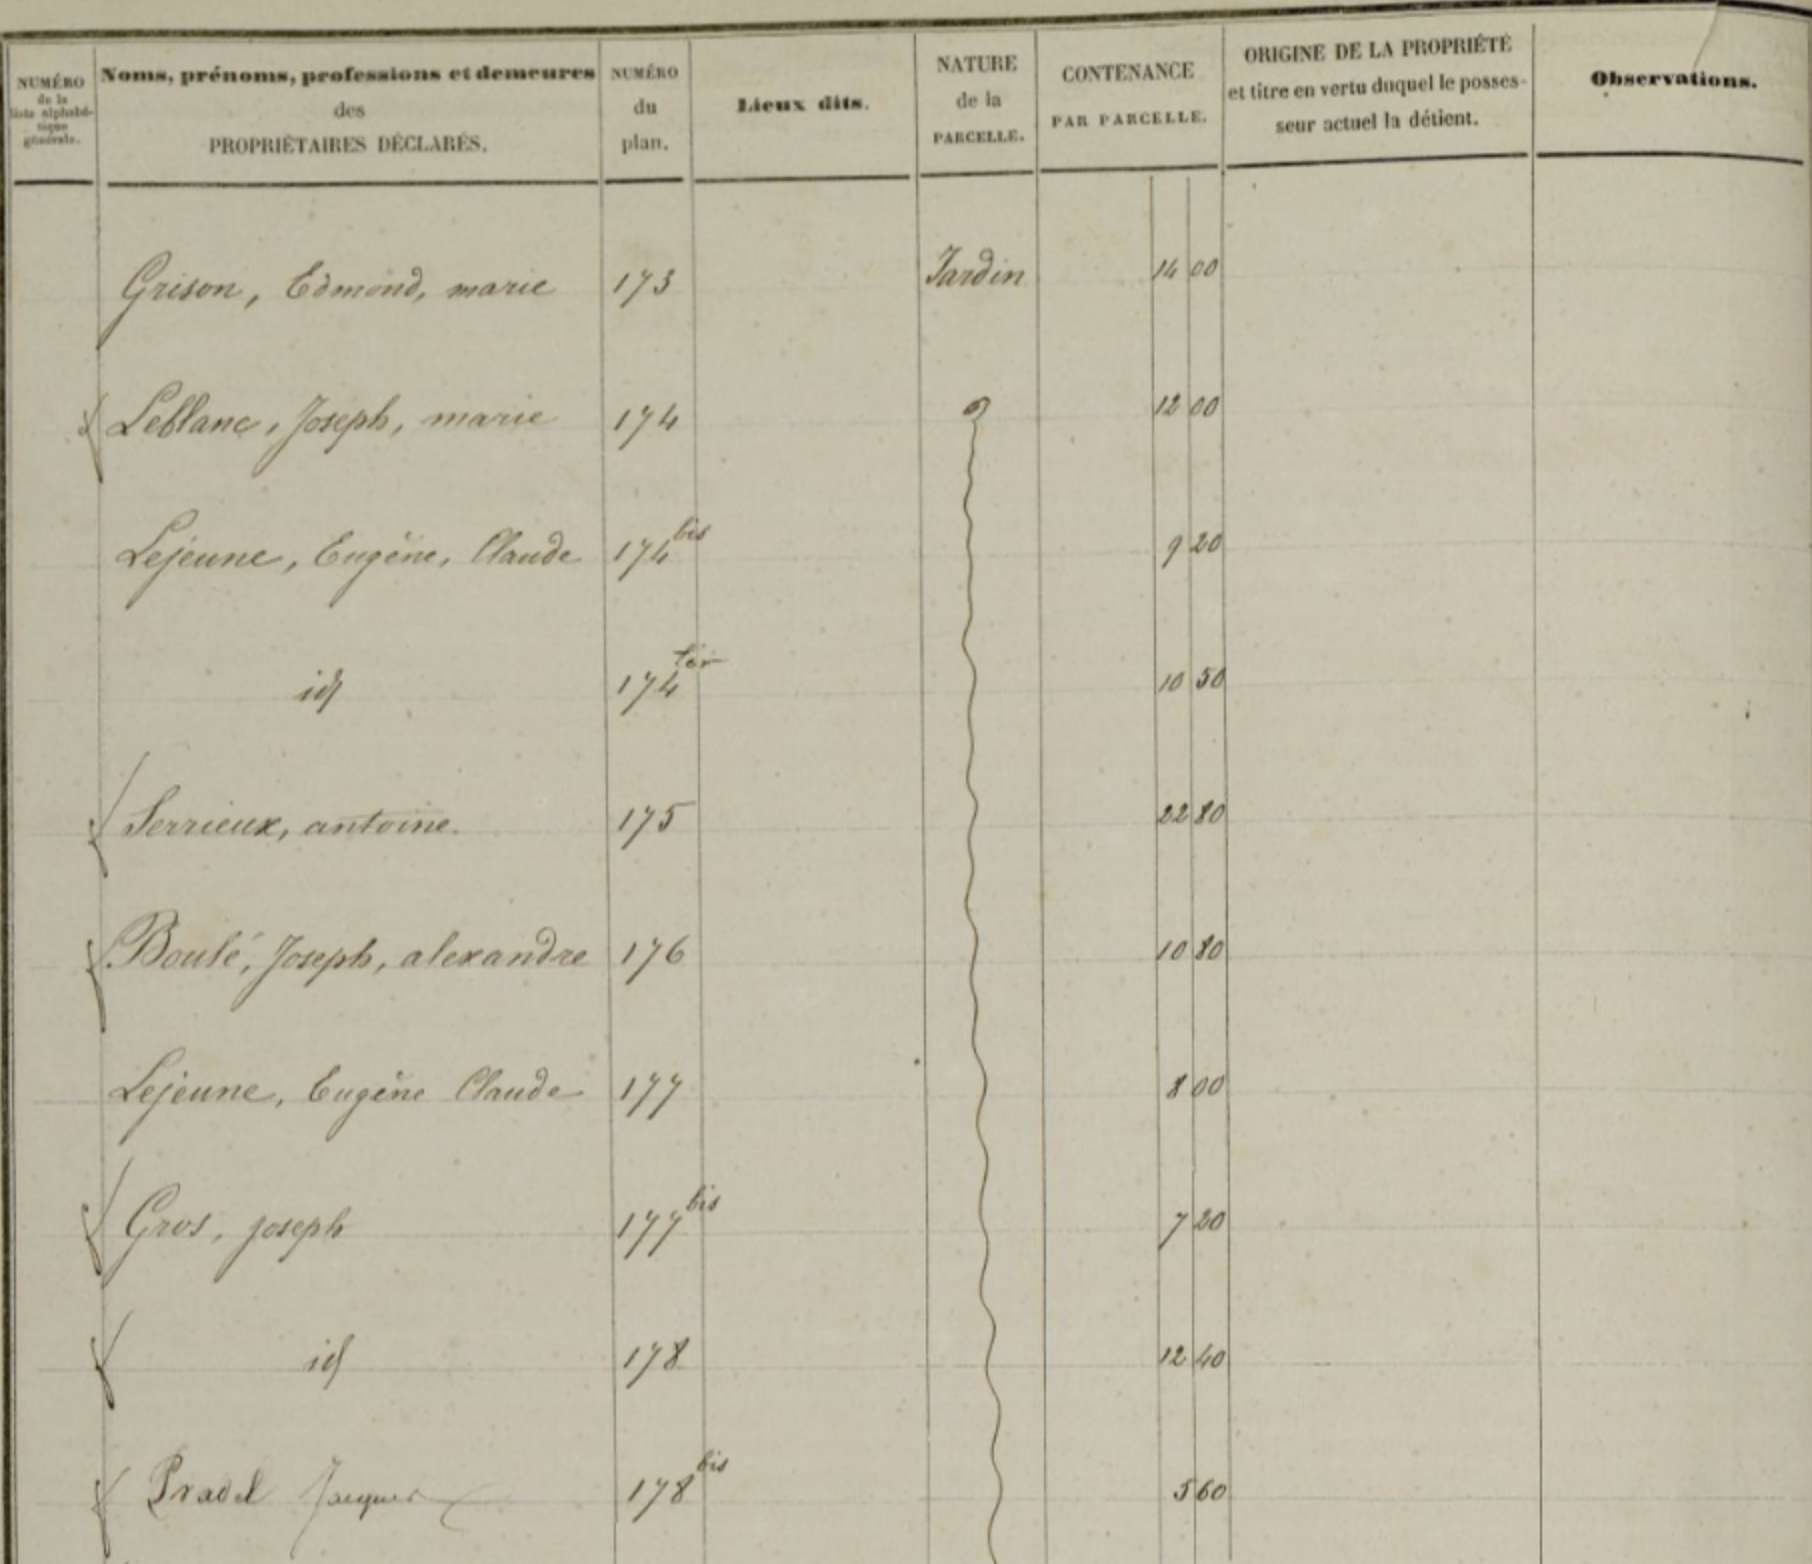 NUMÉRO de la liste alphabé-tique générale. Noms, prénoms, professions et demeures des PROPRIÉTAIRES DÉCLARÉS. NUMÉRO du plan. Lieux dits. NATURE de la PARCELLE. CONTENANCE PAR PARCELLE. ORIGINE DE LA PROPRIÉTÉ et titre en vertu duquel le posses-seur actuel la détient. Observations.
Grison, Edmond, marie 173 Jardin 14 00
Leblanc, Joseph, marie 174 12 00
Lejeune, Eugène, Claude 174 bis 9 20
id 174 ter 10 50
Serrieux, antoine. 175 22 80
Boulé, Joseph, alexandre 176 10 80
Lejeune, Eugène Claude 177 8 00
Gros, joseph 177 bis 7 20
id 178 12 40
Pradel Jacques 178 bis 5 60